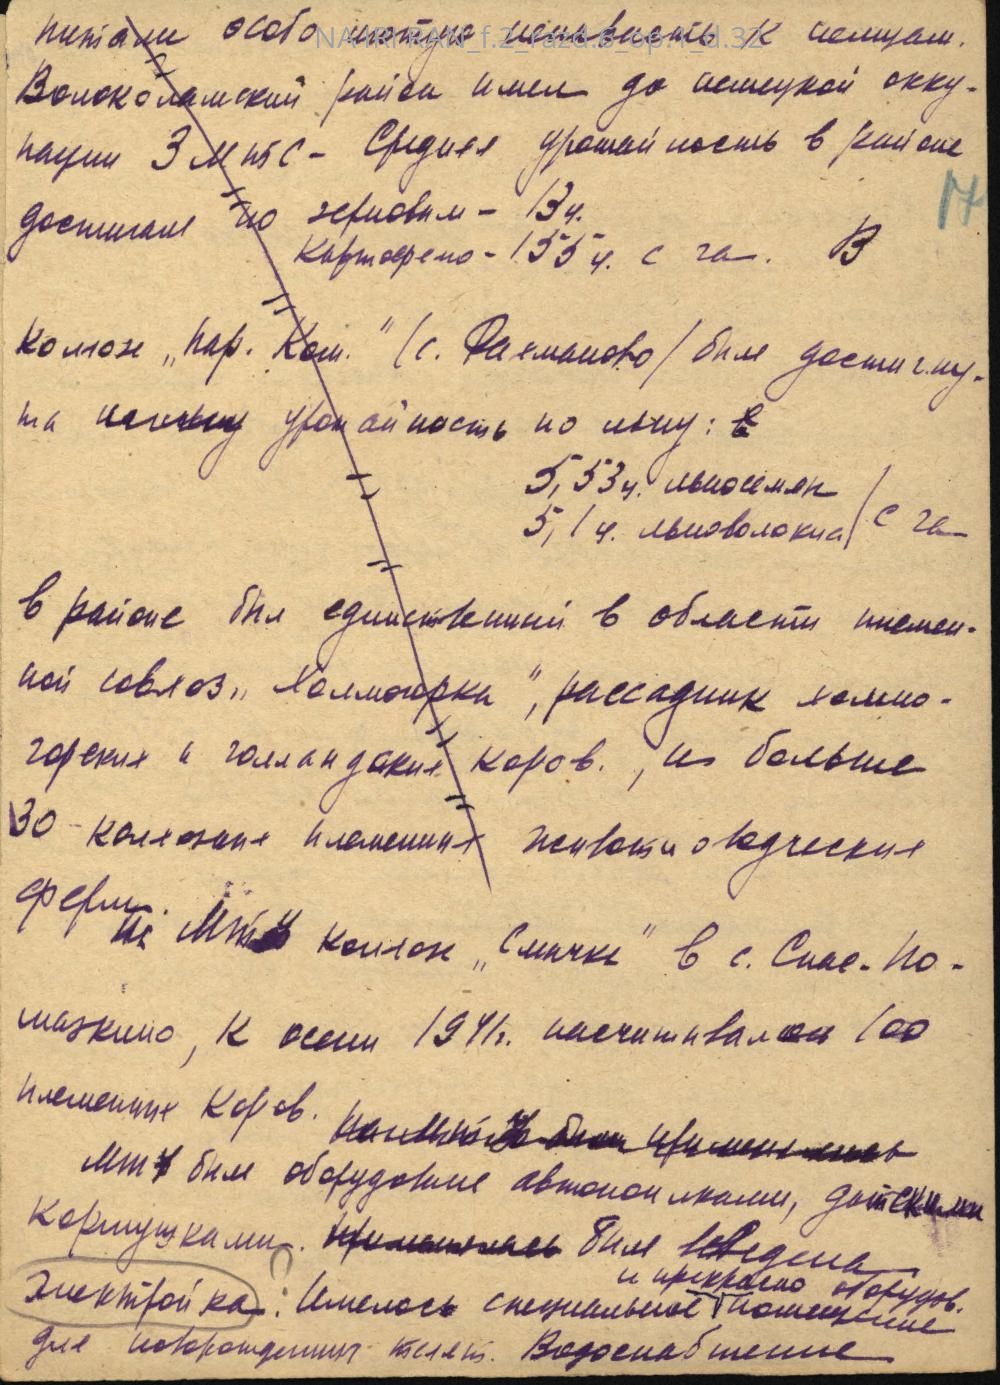 питали особо лютую ненависть к немцам.
NA IRI RAN_f.2_razd.6_op.1_d.32
Волоколамский район имел до немецкой окку-
пации 3 МТС – Средняя урожайность в районе
17
достигала по зерновым – 13 ц.
картофелю – 155 ц. с га. В
колхозе „Пар. Ком." (с. Рахманово) была достигну-
та урожайность по льну: в
5,53 ц. льносемян
5,1 ц. льноволокна / с га
в районе был единственный в области племен-
ной совхоз „Холмогорка", рассадник холмо-
горских и голландских коров., и больше
30 колхозных племенных животноводческих
ферм.
На МТФ колхоза „Смычка" в с. Спас-По-
мазкино, к осени 1941 г. насчитывалось 100
племенных коров. На МТФ были применялись
МТФ была оборудована автопоилками, датскими
кормушками. Применялась была введена
электродойка. Имелось специальное помещение
и прекрасно оборудов.
для новорожденных телят. Водоснабжение